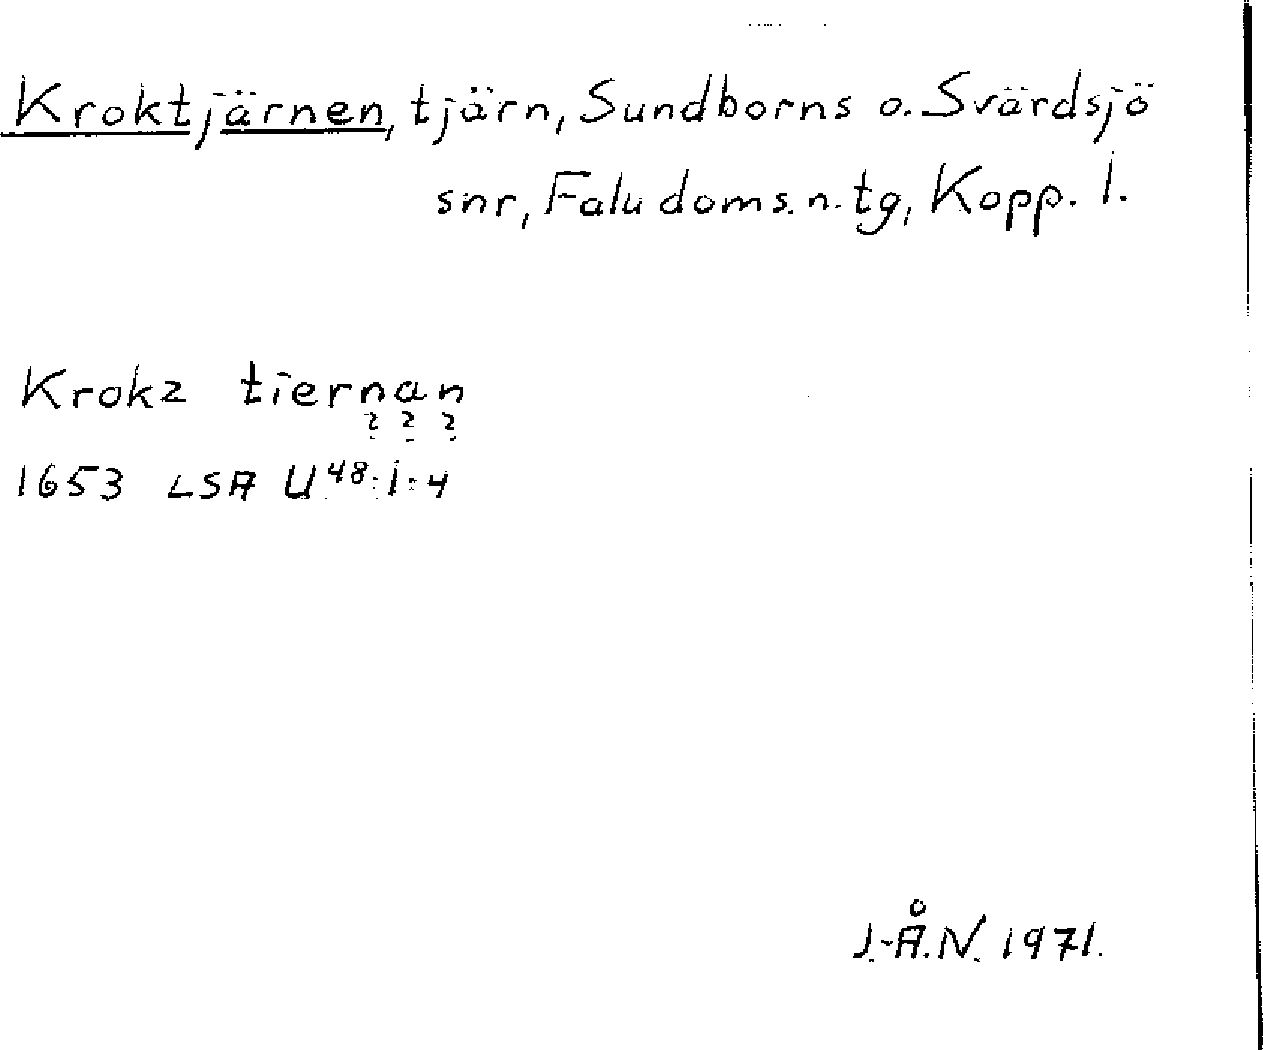 Kroktjärnen, tjärn, Sundborns o. Svärdsjö
snr, Falu doms.n. tg, Kopp. l.
Krokz tiernan
? ? ?
1653 LSA U48:1:4
J.-Å.N. 1971.